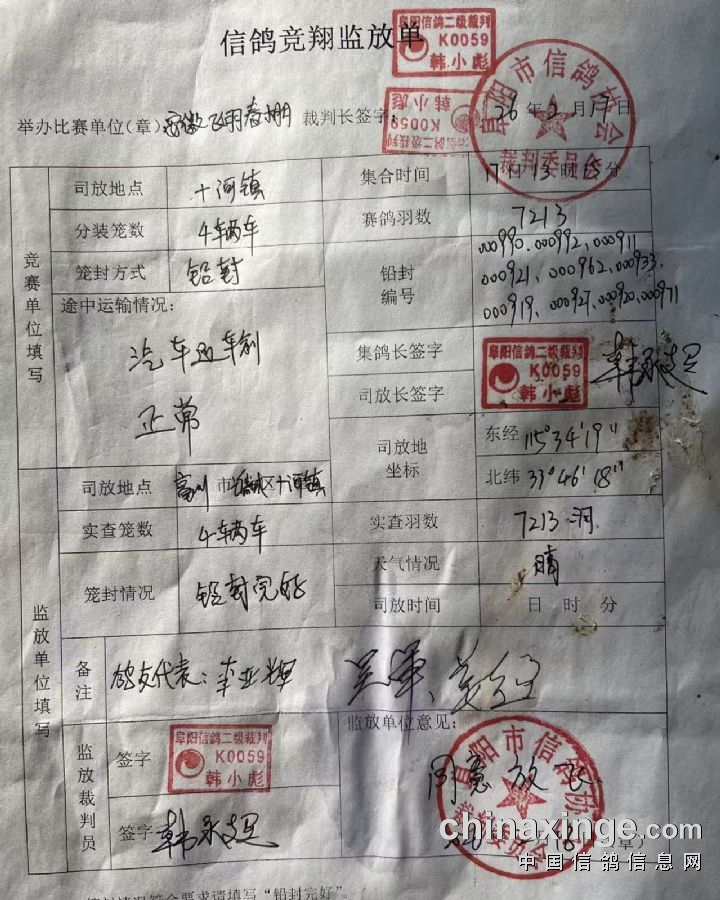 信鸽竞翔监放单
阜阳信鸽二级裁判
K0059
韩小彪
阜阳信鸽二级裁判
K0059
韩小彪
举办比赛单位(章) 安徽飞羽春棚 裁判长签字: 26年2月17日
阜阳市信鸽协会
裁判委员会
竞赛单位填写
司放地点 十河镇 集合时间 17日13时15分
分装笼数 4车辆车 赛鸽羽数 7213
笼封方式 铅封 铅封编号 000990、000992、000911
000921、000962、000933、
000919、000927、000920、000971
途中运输情况:
汽车运输
正常
集鸽长签字 阜阳信鸽二级裁判
K0059
韩小彪
韩永超
司放长签字
司放地坐标 东经 115°34′19″
北纬 33°46′18″
监放单位填写
司放地点 市 区十河镇
实查笼数 4车辆车 实查羽数 7213羽
笼封情况 铅封完好 天气情况 晴
司放时间 日 时 分
备注 鸽友代表:李亚辉
监放裁判员
签字 阜阳信鸽二级裁判
K0059
韩小彪
签字 韩永超
监放单位意见:
同意放飞
阜阳市信鸽协会
裁判委员会
(章)
chinaxinge.com
中国信鸽信息网
笼封情况符合要求请填写“铅封完好”。